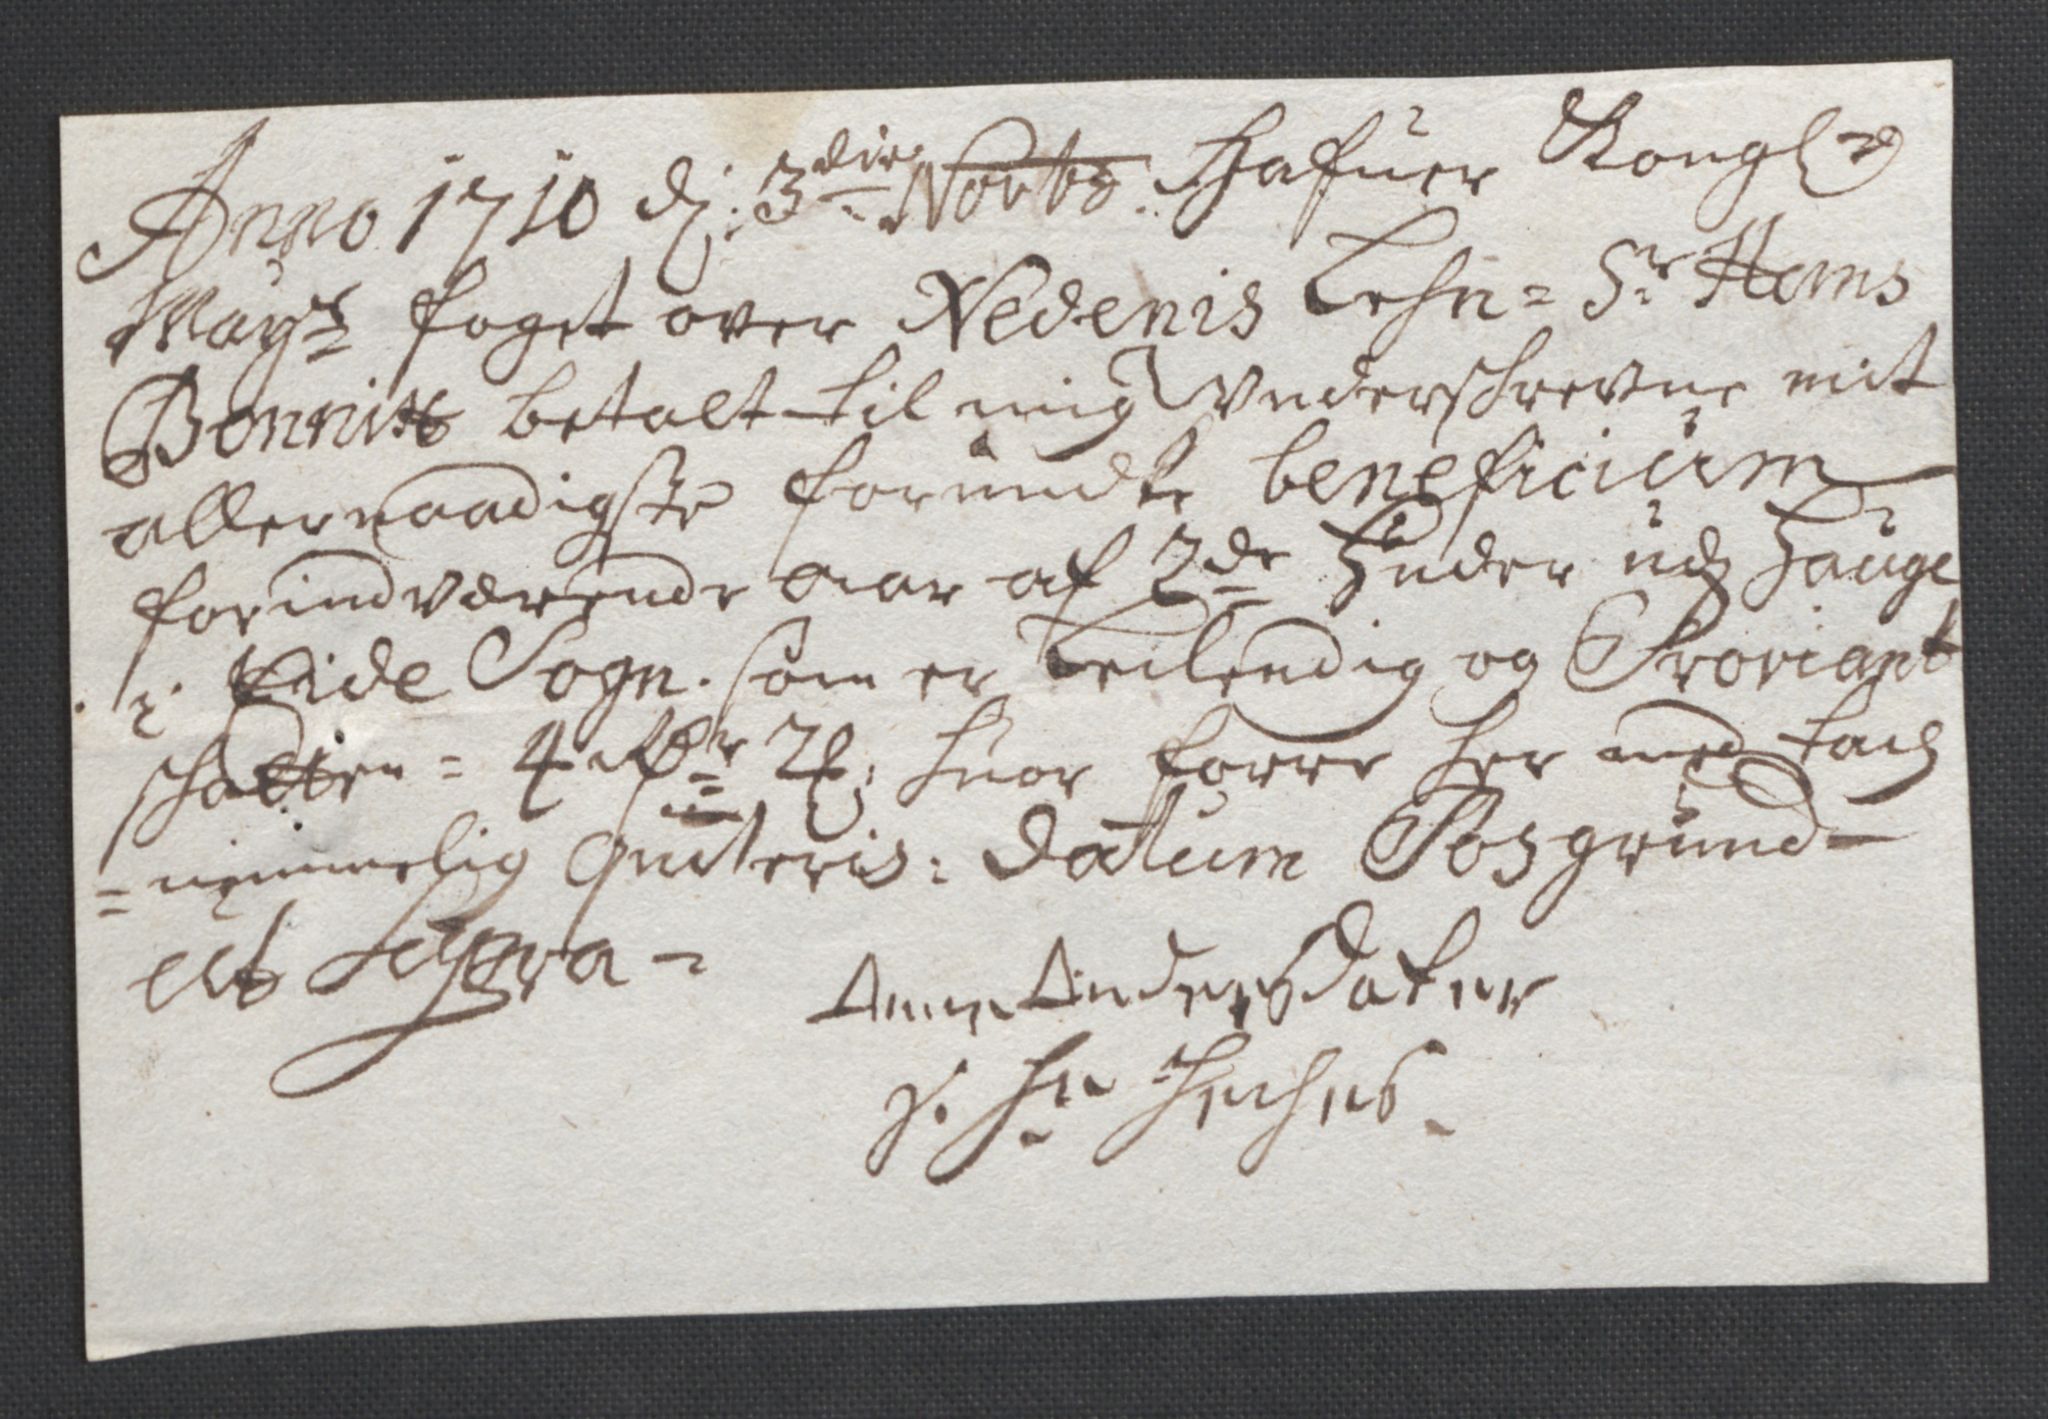 Anno 1710 d: 3die Novbr: Hafuer Kongl:
Mayts foget over Nedenis Lehn = Sr Hans
Bennitz betalt til mig Underschrevne mit
allernaadigste forundte beneficium
for indværende aar af 2de huder udj Hauge
i Eide Sogn. som er Leilendig og Proviant
schatten = 4 Rdr 2 hvor forre her med tach
= nemmelig quiteris: Datum Posgrund
ut Supra -
Anne Andersdatter